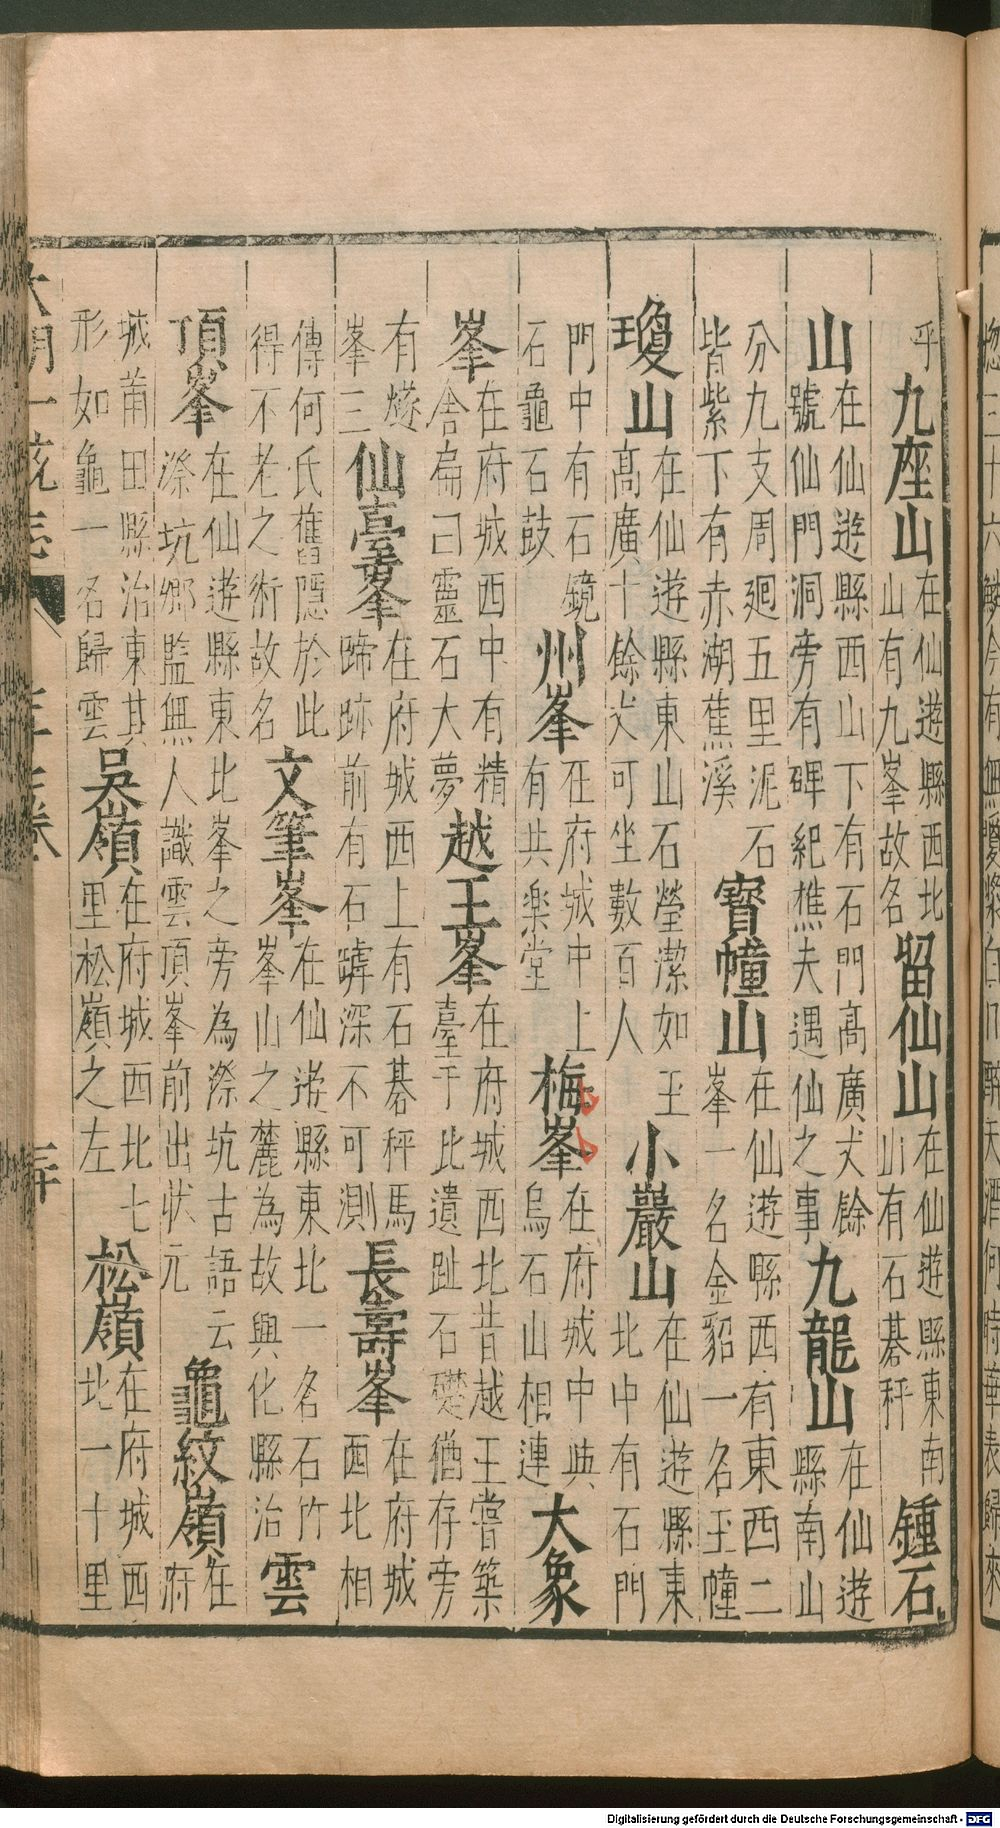 乎九座山在仙遊縣西北山有九峯故名留仙山在仙遊縣東南山有石碁秤鍾石
山在仙遊縣西山下有石門高廣丈餘號仙門洞旁有碑紀樵夫遇仙之事九龍山在仙遊縣南山
分九支周廻五里泥石皆紫下有赤湖蕉溪寶幢山在仙遊縣西有東西二峯一名金貂一名玉幢
瓊山在仙遊縣東山石瑩潔如玉高廣十餘丈可坐數百人小巖山在仙遊縣東北中有石門
門中有石鏡石龜石鼓州峯在府城中上有共楽堂梅峯在府城中與烏石山相連大象
峯在府城西中有精舍扁曰靈石大夢越王峯在府城西北昔越王嘗築臺于此遺趾石礎猶存旁
有燧峯三仙臺峯在府城西上有石碁秤馬蹄跡前有石罅深不可測長壽峯在府城西北相
傳何氏舊隱於此得不老之術故名文筆峯在仙遊縣東北一名石竹峯山之麓為故興化縣治雲
頂峯在仙遊縣東北峯之旁為漈坑古語云漈坑鄉監無人識雲頂峯前出状元龜紋嶺在府
城莆田縣治東其形如龜一名歸雲吳嶺在府城西北七里松嶺之左松嶺在府城西北一十里
大明一統志
Digitalisierung gefördert durch die Deutsche Forschungsgemeinschaft - DFG